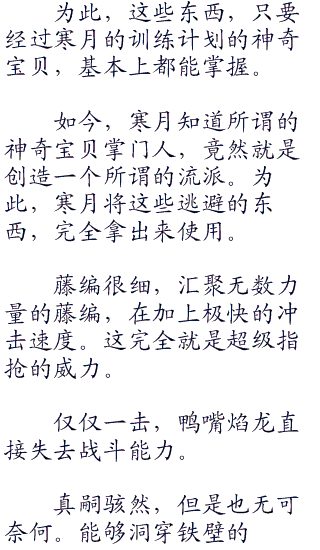 为此，这些东西，只要
经过寒月的训练计划的神奇
宝贝，基本上都能掌握。
如今，寒月知道所谓的
神奇宝贝掌门人，竟然就是
创造一个所谓的流派。为
此，寒月将这些逃避的东
西，完全拿出来使用。
藤编很细，汇聚无数力
量的藤编，在加上极快的冲
击速度。这完全就是超级指
抢的威力。
仅仅一击，鸭嘴焰龙直
接失去战斗能力。
真嗣骇然，但是也无可
奈何。能够洞穿铁壁的